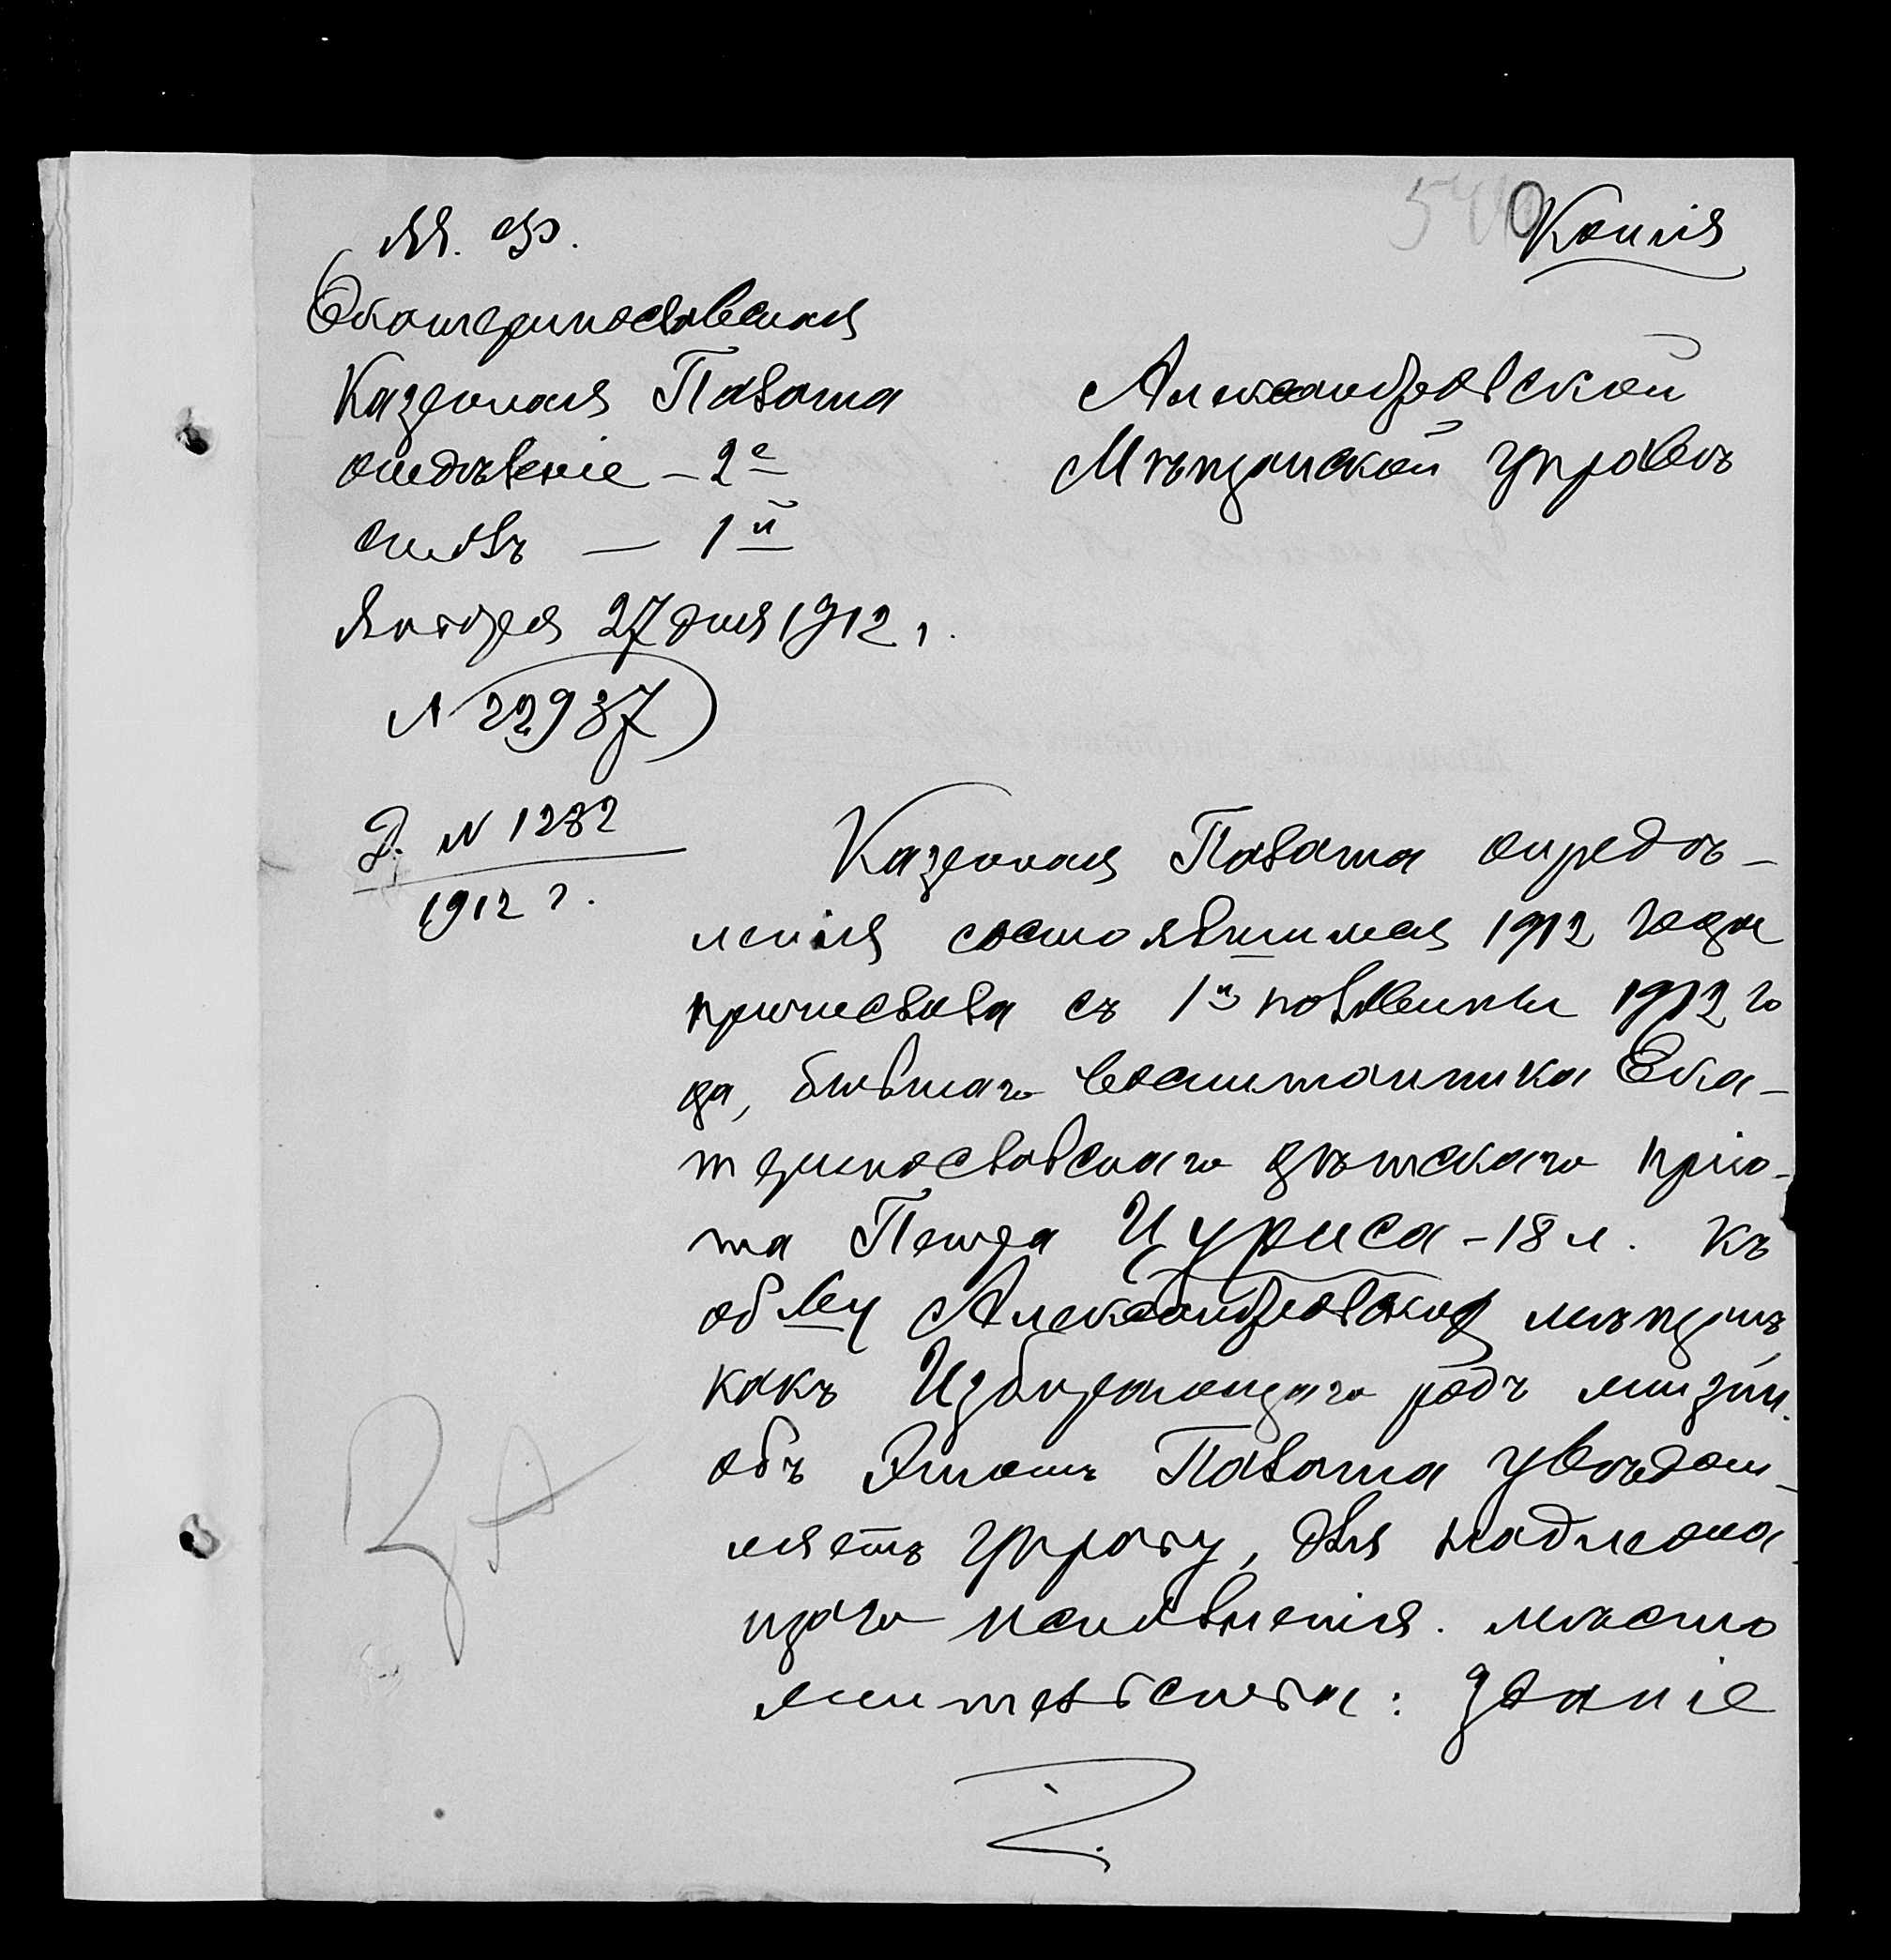 Копія
М. Ф.
Екатеринославская
Казенная Палата
отдѣленіе – 2е
столъ — 1й
Января 27 дня 1912 г.
N 22937
Д. N 1232
1912 г.
Александровской
Мѣщанской управѣ
Казенная Палата опредѣ-
леніемъ состоявшимся 1912 года
причислила съ 1й половины 1912 го
да, бывшаго воспитанника Ека-
теринославскаго дѣтскаго прію-
та Петра Цуриса – 18 л. къ
общву Александровских мѣщанъ
какъ Избирающаго родъ жизни.
объ Этомъ Палата увѣдом-
ляетъ управу, для надлежа-
щаго исполненія. мѣсто
жительства: зданіе